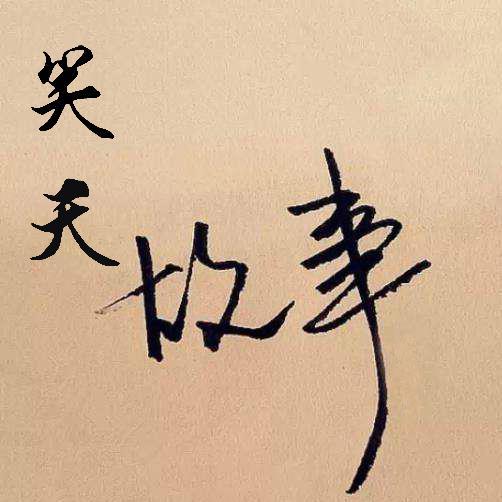 笑天
故事